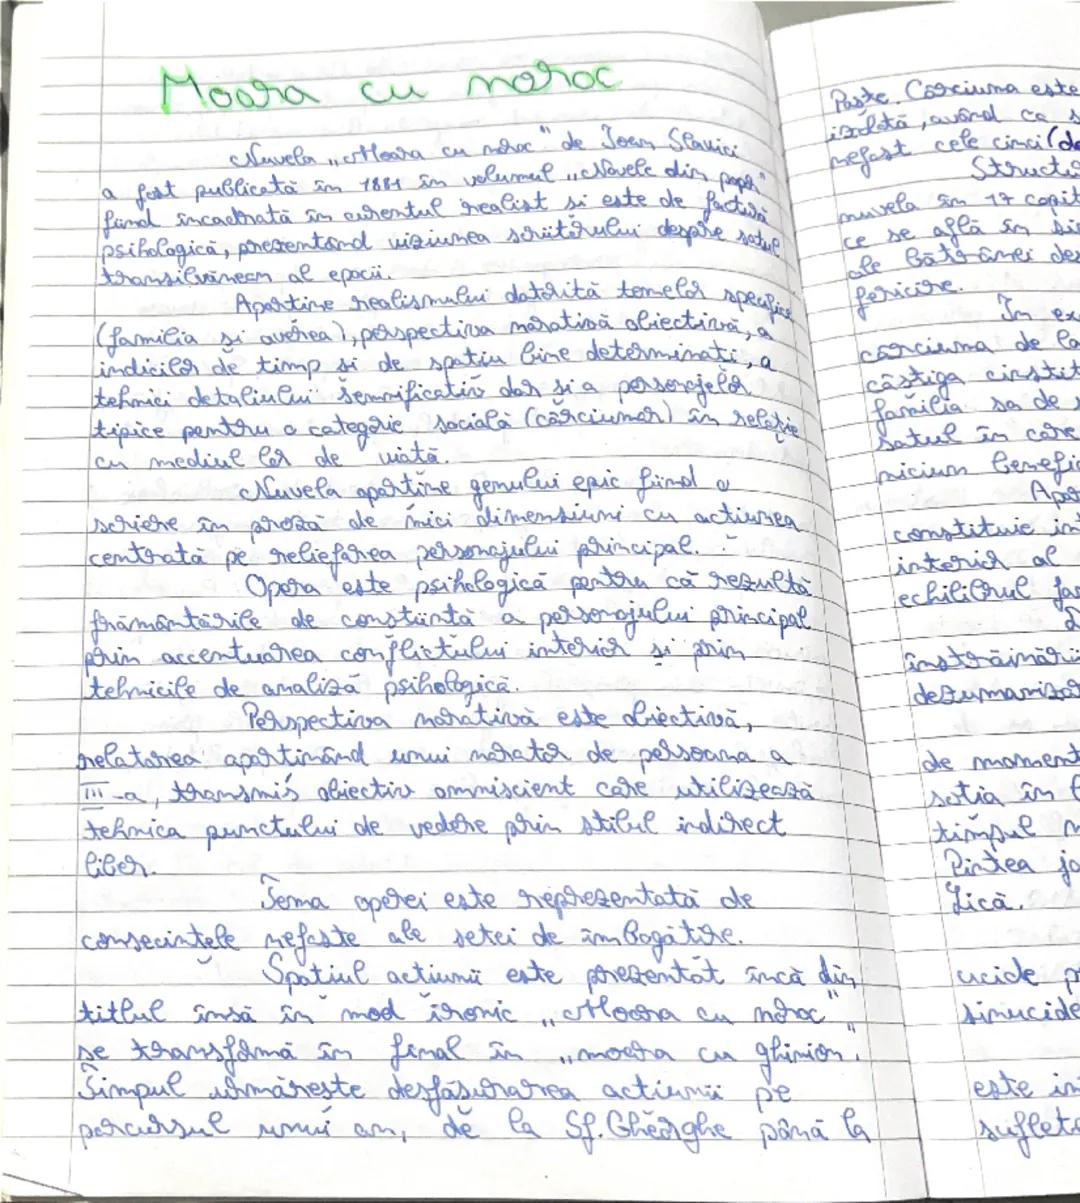 Moara cu noroc
Nuvela „Moara cu noroc" de Ioan Slavici
a fost publicată în 1881 în volumul „Novele din popor"
fiind încadrată în curentul realist și este de factură
psihologică, prezentând viziunea scriitorului despre satul
transilvănean al epocii.
Aparține realismului datorită temelor specifice
(familia și averea), perspectiva narativă obiectivă, a
indicilor de timp și de spațiu bine determinați, a
tehnici detaliului semnificativ dar și a personajelor
tipice pentru o categorie socială (cârciumar) în relație
cu mediul lor de viață.
Nuvela aparține genului epic fiind o
scriere în proză de mici dimensiuni cu acțiunea
centrată pe reliefarea personajului principal.
Opera este psihologică pentru că rezultă
frământările de conștiință a personajului principal
prin accentuarea conflictului interior și prin
tehnicile de analiză psihologică.
Perspectiva narativă este obiectivă,
relatarea aparținând unui narator de persoana a
III-a, transmis obiectiv omniscient care utilizează
tehnica punctului de vedere prin stilul indirect
liber.
Tema operei este reprezentată de
consecințele nefaste ale setei de îmbogățire.
Spațiul acțiunii este prezentat încă din
titlul însă în mod ironic „Moara cu noroc"
se transformă în final în „moara cu ghinion".
Timpul urmărește desfășurarea acțiunii pe
percursul unui an, de la Sf. Gheorghe până la
Paște. Cârciuma este
izolată, având ca
nefast cele cinci
nuvela în 17
ce se află în
ale bătrânei
fericire.
În
cârciuma de la
câștiga
familia sa de
satul în care
niciun
constituie
interior al
echilibrul
de
soția în
timpul
Pintea
Lică.
ucide
este